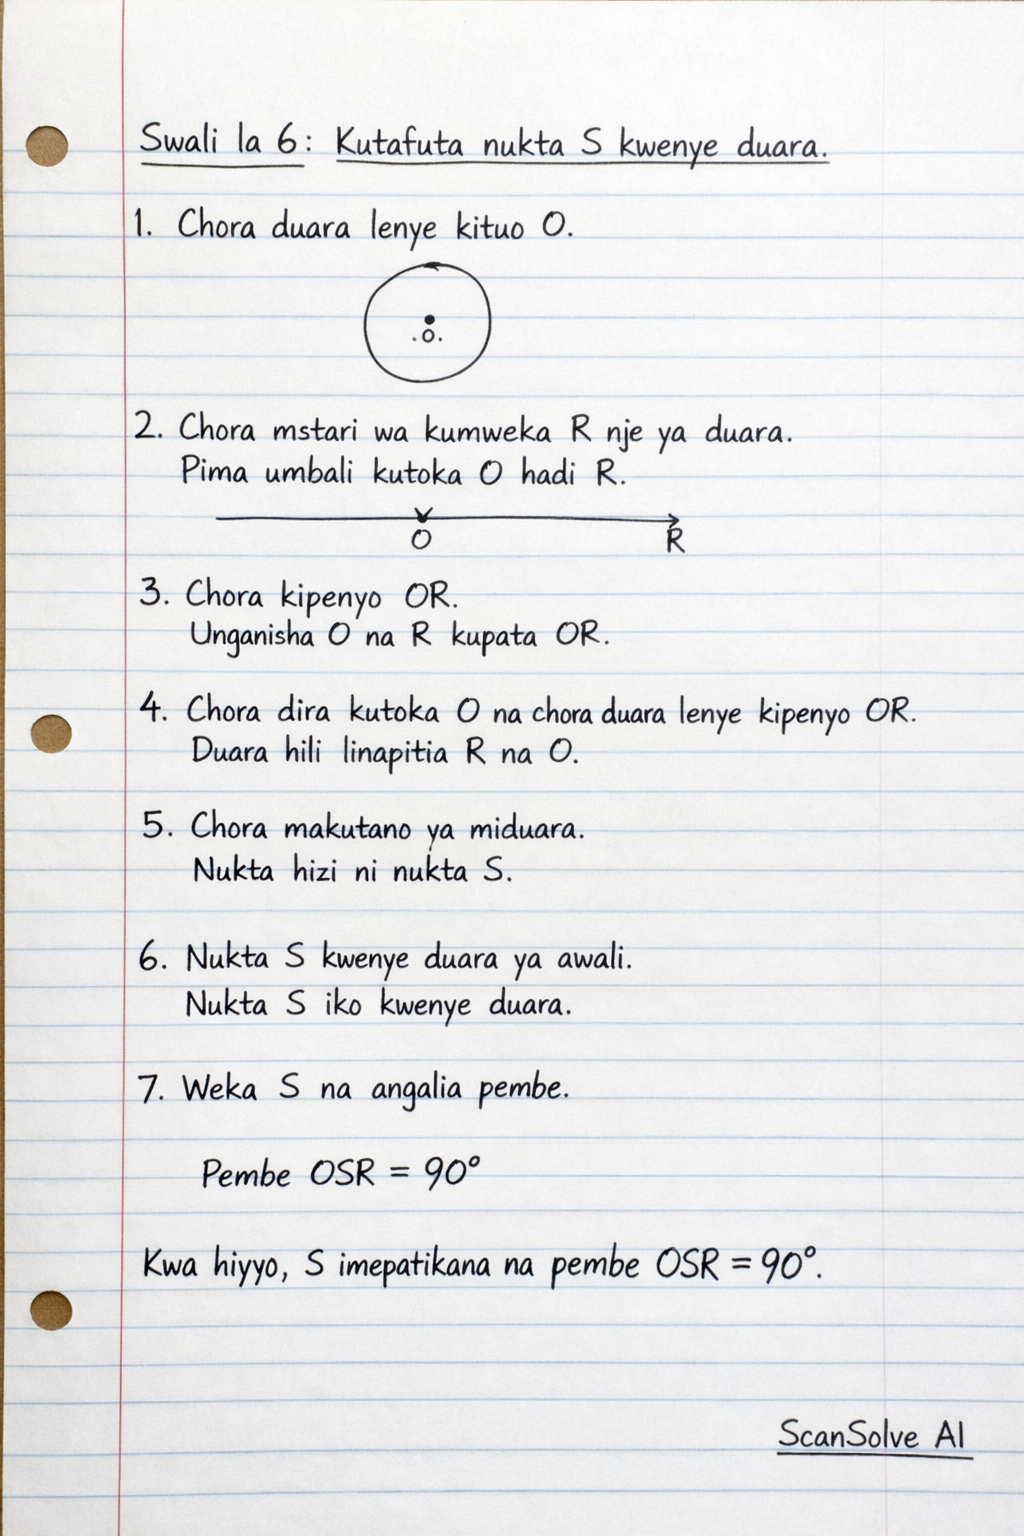 Swali la 6: Kutafuta nukta S kwenye duara.
1. Chora duara lenye kituo O.
.O.
2. Chora mstari wa kumweka R nje ya duara.
Pima umbali kutoka O hadi R.
O R
3. Chora kipenyo OR.
Unganisha O na R kupata OR.
4. Chora dira kutoka O na chora duara lenye kipenyo OR.
Duara hili linapitia R na O.
5. Chora makutano ya miduara.
Nukta hizi ni nukta S.
6. Nukta S kwenye duara ya awali.
Nukta S iko kwenye duara.
7. Weka S na angalia pembe.
Pembe OSR = 90°
Kwa hiyyo, S imepatikana na pembe OSR = 90°.
ScanSolve AI